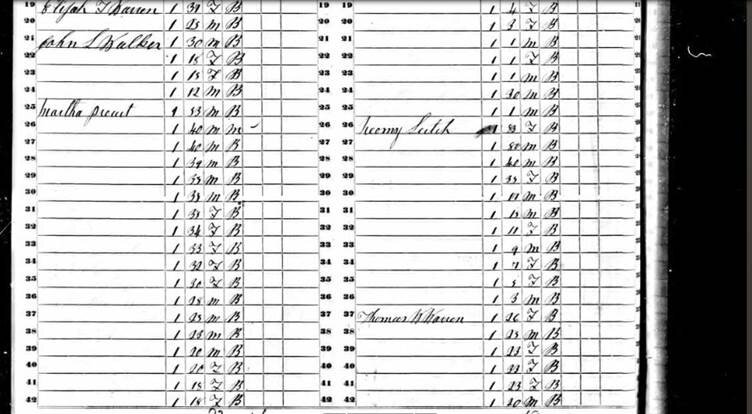 19 Elijah T Warren 1 39 F B
20 1 25 m B
21 John L Walker 1 30 m B
22 1 18 F B
23 1 18 F B
24 1 12 m B
25 Martha 1 53 m B
26 1 40 m m
27 1 40 m B
28 1 39 m B
29 1 38 m B
30 1 38 m B
31 1 38 F B
32 1 34 F B
33 1 33 F B
34 1 32 F B
35 1 30 F B
36 1 28 m B
37 1 25 m B
38 1 23 m B
39 1 20 m B
40 1 20 F B
41 1 18 F B
42 1 18 F B
19 1 4 F B
20 1 3 F B
21 1 1 m B
22 1 1 F B
23 1 1 m B
24 1 30 m B
25 1 1 m B
26 1 F B
27 1 50 m B
28 1 40 m B
29 1 35 F B
30 1 m B
31 1 m B
32 1 11 F B
33 1 9 m B
34 1 7 F B
35 1 5 F B
36 1 3 m B
37 Thomas W Warren 1 26 F B
38 1 25 m B
39 1 23 F B
40 1 22 F B
41 1 23 F B
42 1 20 m B